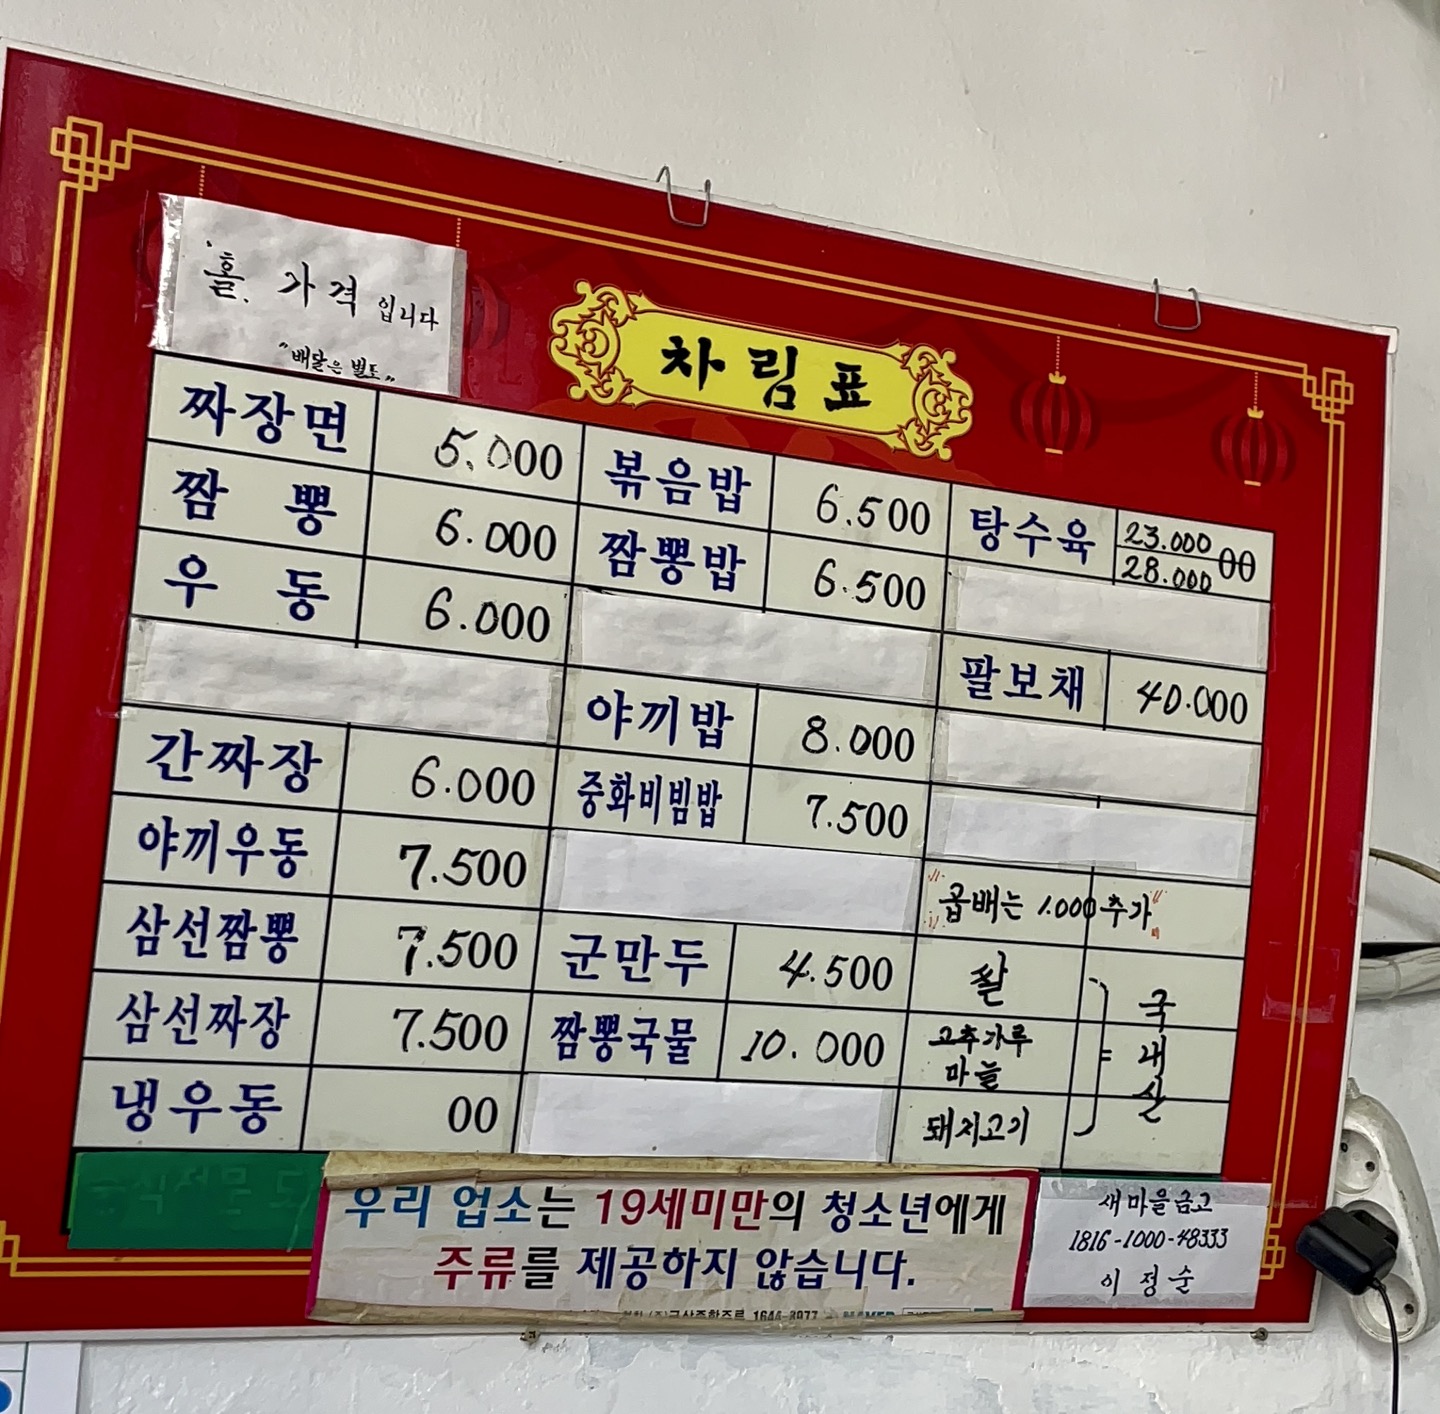 홀. 가격 입니다
"배달은 별도"
차림표
짜장면 5.000
짬뽕 6.000
우동 6.000
간짜장 6.000
야끼우동 7.500
삼선짬뽕 7.500
삼선짜장 7.500
냉우동 00
볶음밥 6.500
짬뽕밥 6.500
야끼밥 8.000
중화비빔밥 7.500
군만두 4.500
짬뽕국물 10.000
탕수육 23.000 00
28.000
팔보채 40.000
"곱배는 1.000 추가"
쌀
고추가루
마늘
돼지고기
= 국내산
우리 업소는 19세미만의 청소년에게
주류를 제공하지 않습니다.
1644-8977
새마을금고
1816-1000-48333
이정순